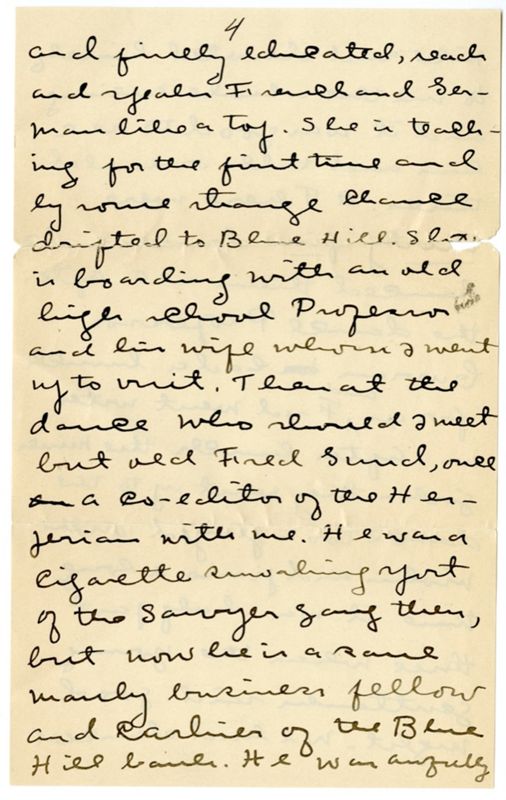 4
and finely educated, reads
and speaks French and Ger-
man like a top. She is teach-
ing for the first time and
by some strange chance
drifted to Blue Hill. She
is boarding with an old
high school Professor
and his wife whom I went
up to visit. Then at the
dance who should I meet
but old Fred Sund, once
a co-editor of the Hes-
perian with me. He was a
cigarette smoking sport
of the Sawyer gang then,
but now he is a sane
manly business fellow
and cashier of the Blue
Hill bank. He was awfully